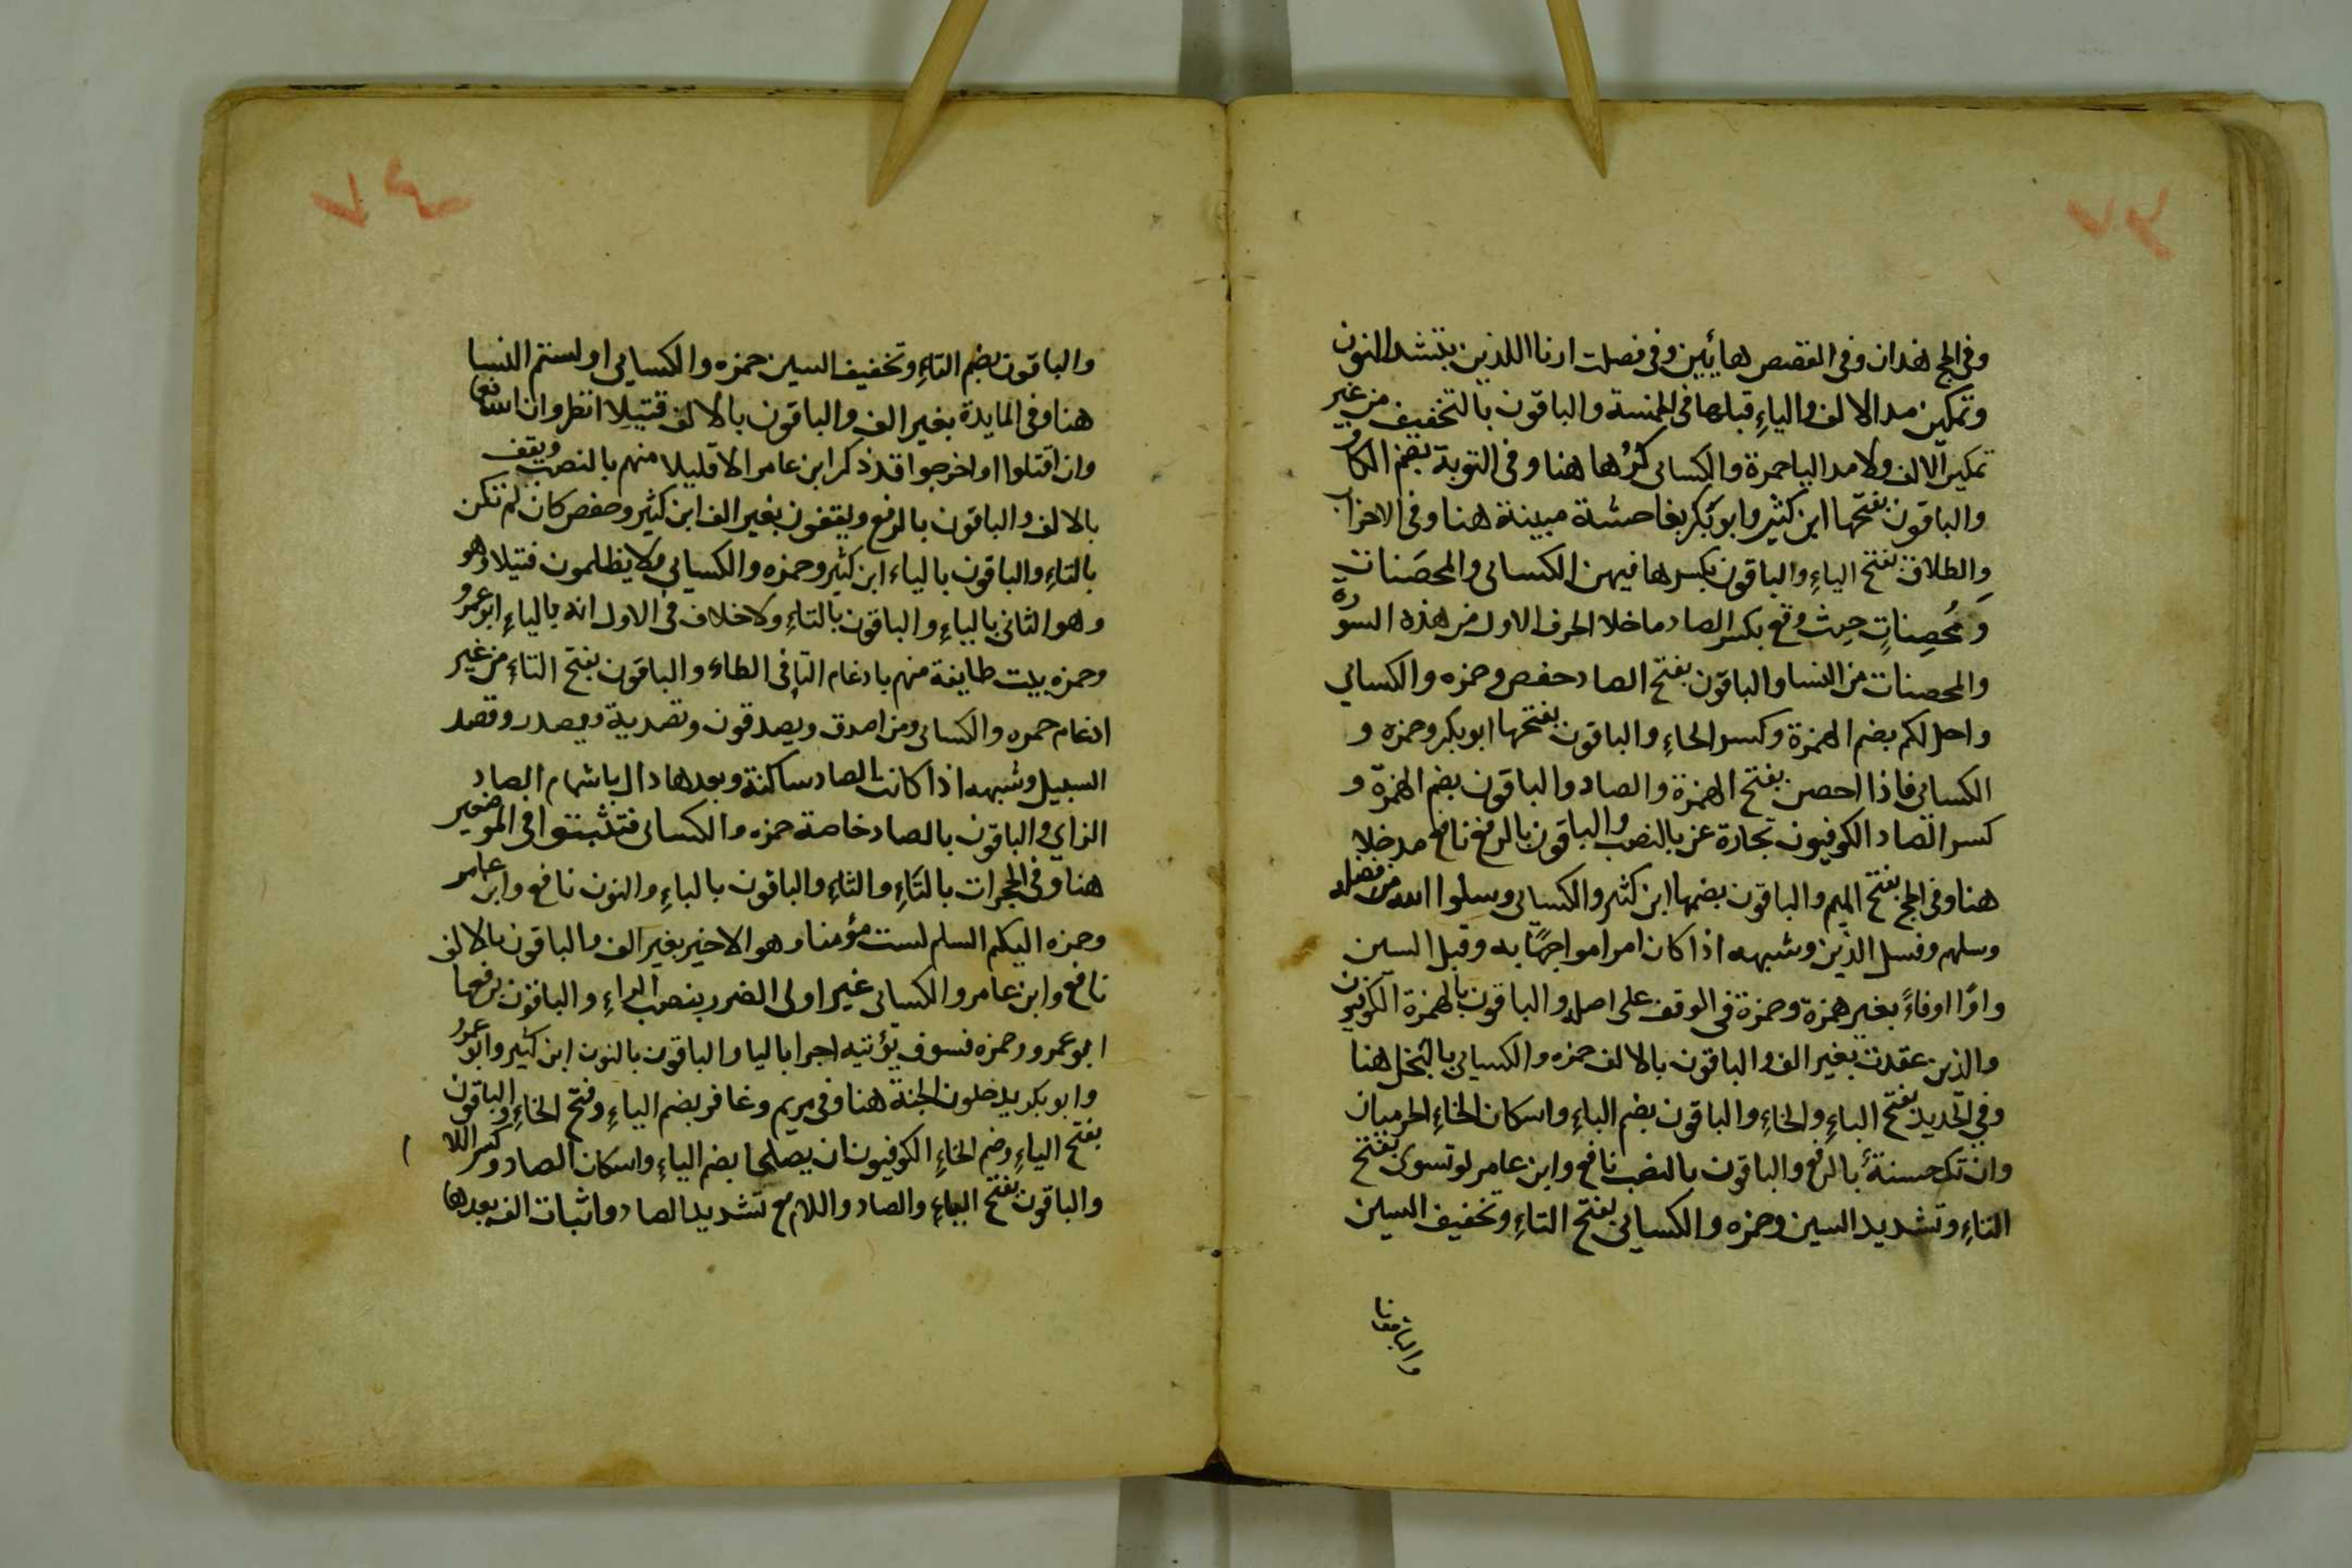 وفى الحج هذان وفى القصص هاتين وفى فصلت ارنا اللذين بتشد النون
وتمكين مد الالف والياءِ قبلها فى الخمسة والباقون بالتخفيف من غير
تمكين الالف ولا مد اليا حمزة والكسائى كُرْها هنا وفى التوبة بضم الكاف
والباقون بفتحها ابن كثير وابو بكر بفاحشة مبينة هنا وفى الاحزاب
والطلاق بفتح الياءِ والباقون بكسرها فيهن الكسائى والمحصَنات
وَمُحصِناتٍ حيث وقع بكسر الصاد ما خلا الحرف الاول من هذه السورة
والمحصنات من النسا والباقون بفتح الصاد حفص وحمزه والكسائي
واحل لكم بضم الهمزة وكسر الحاءِ والباقون بفتحها ابو بكر وحمزه و
الكسائى فاذا احصن بفتح الهمزة والصاد والباقون بضم الهمزة و
كسر الصاد الكوفيون تجارة عن بالنصب والباقون بالرفع نافع مدخلا
هنا وفى الحج بفتح الميم والباقون بضمها ابن كثير والكسائى وسلوا الله من فضله
وسلهم وفسل الذين وشبهه اذا كان امرا مواجهًا به وقبل السين
واوًا اوفاءً بغير همزة وحمزة فى الوقف على اصله والباقون بالهمزة الكوفيون
والذين عقدت بغير الف والباقون بالالف حمزه والكسايى بالبخل هنا
وفي الحديد بفتح الباءِ والخاءِ والباقون بضم الباءِ واسكان الخاءِ الحرميان
وان تك حسنةٌ بالرفع والباقون بالنصب نافع وابن عامر لو تسوى بفتح
التاءِ وتشديد السين وحمزه والكسايى بفتح التاءِ وتخفيف السين
والباقون
والباقون بضم التاءِ وتخفيف السين حمزه والكسايى او لستم النسا
هنا وفى المايدة بغير الف والباقون بالالف قتيلا انظر وان
وان اقتلوا او اخرجوا قد ذكر ابن عامر الا قليلا منهم بالنصب ويقف
بالالف والباقون بالرفع ويقفون بغير الف ابن كثير وحفص كان لم تكن
بالتاءِ والباقون بالياء ابن كثير وحمزه والكسايى ولا يظلمون فتيلا وهو
وهو الثانى بالياءِ والباقون بالتاءِ ولا خلاف فى الاول انه بالياءِ ابو عمرو
وحمزه بيت طايفة منهم بادغام التا فى الطاء والباقون بفتح التاءِ من غير
ادغام حمزه والكسائى ومن اصدق ويصدقون وتصدية ويصدر وقصد
السبيل وشبهه اذا كانت الصاد ساكنة وبعدها دال باشمام الصاد
الزاي والباقون بالصاد خاصة حمزه والكسائى فتثبتوا فى الموضعين
هنا وفى الحجرات بالتاءِ والثاءِ والباقون بالباءِ والنون نافع وابن عامر
وحمزه اليكم السلم لست مؤمنا وهو الاخير بغير الف والباقون بالالف
نافع وابن عامر والكسائى غير اولى الضرر بنصب الراءِ والباقون برفعها
ابو عمرو وحمزه فسوف يؤتيه اجرا باليا والباقون بالنون ابن كثير وابو عمرو
وابو بكر يدخلون الجنة هنا وفى مريم وغافر بضم الياءِ وفتح الخاءِ والباقون
بفتح الياءِ وضم الخاءِ الكوفيون ان يصلحا بضم الياءِ واسكان الصاد وكسر اللا
والباقون بفتح الياءِ والصاد واللام مع تشديد الصاد واثبات الف بعدها